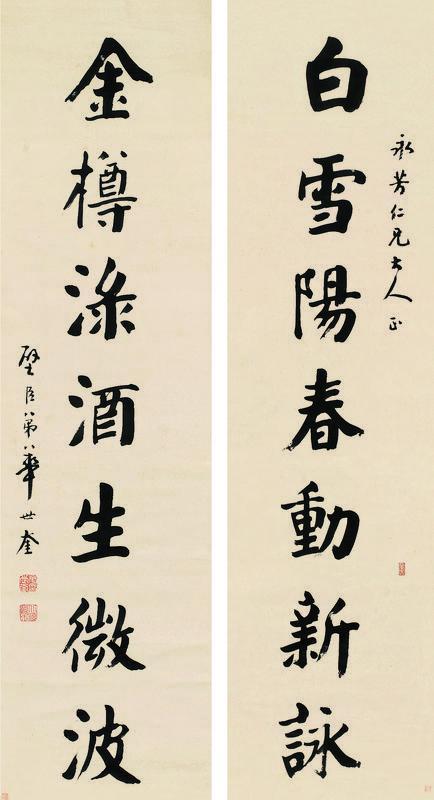 永芳仁兄大人正
白雪陽春動新詠
金樽渌酒生微波
璧臣弟華世奎